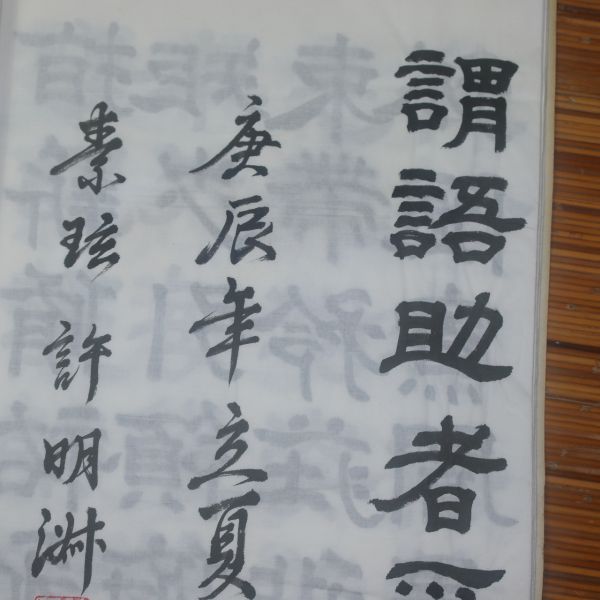 謂語助者
庚辰年立夏
素玹許明淋